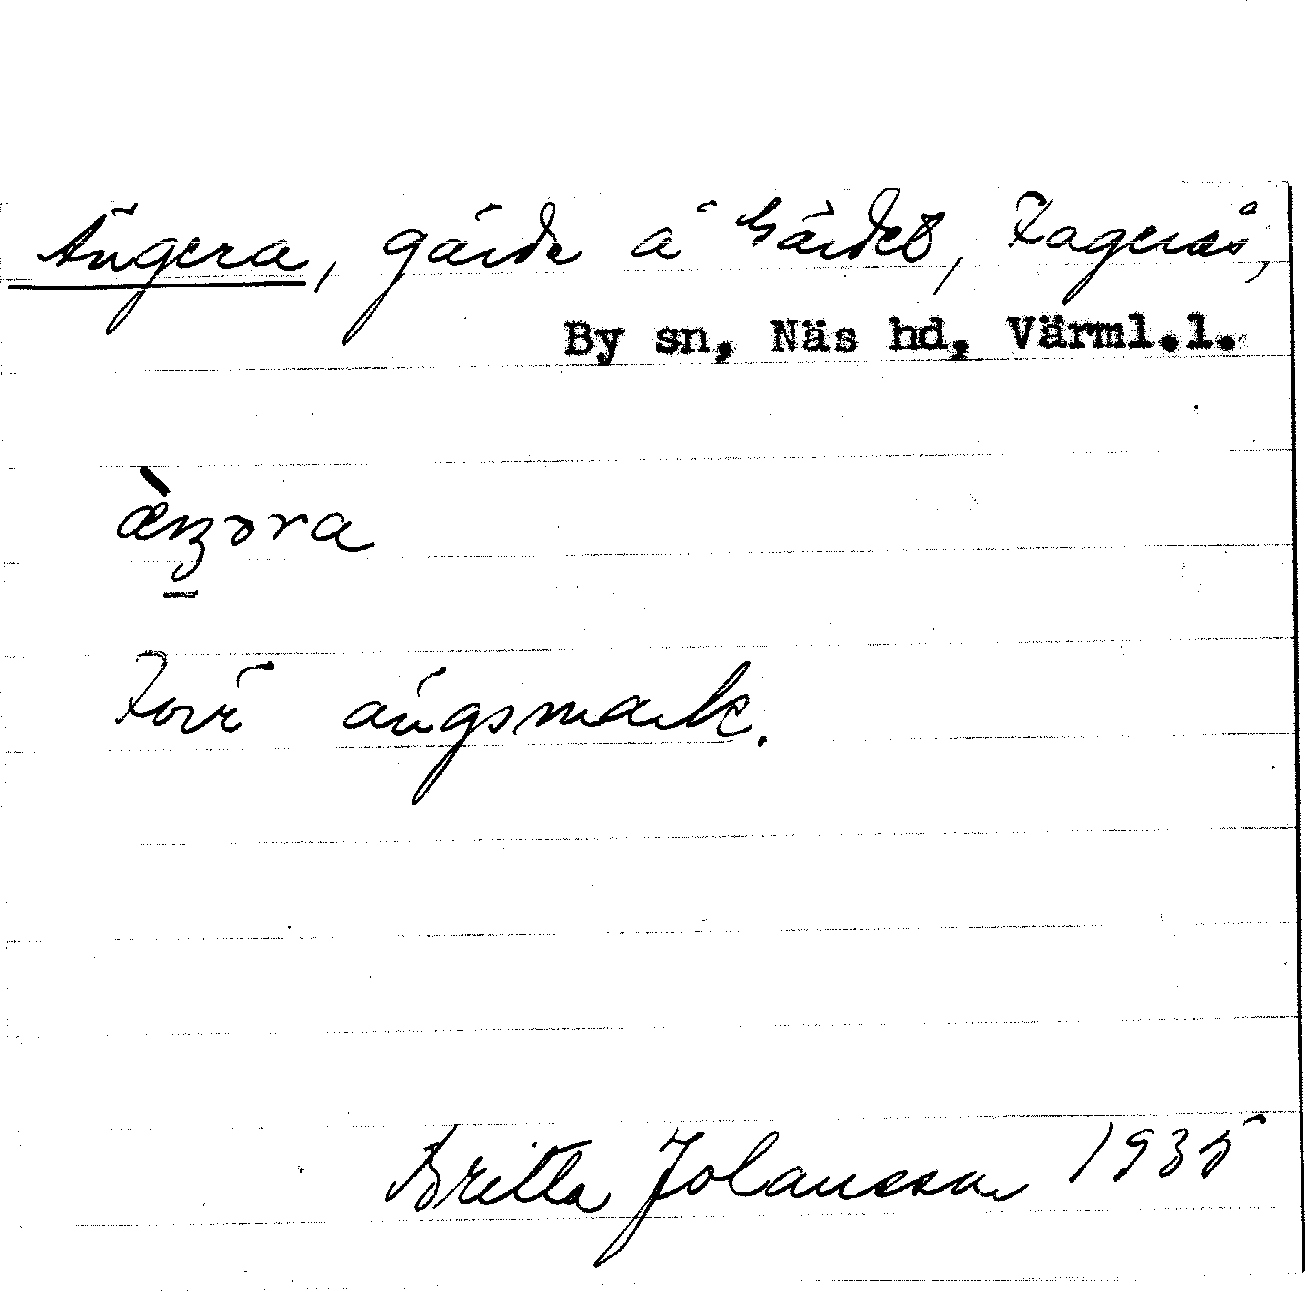 Ängera, gärde å Gärdet, Fagerås,
By sn, Näs hd, Värml.l.
æ̀ŋəra
Förr ängsmark.
Britta Johansson 1935